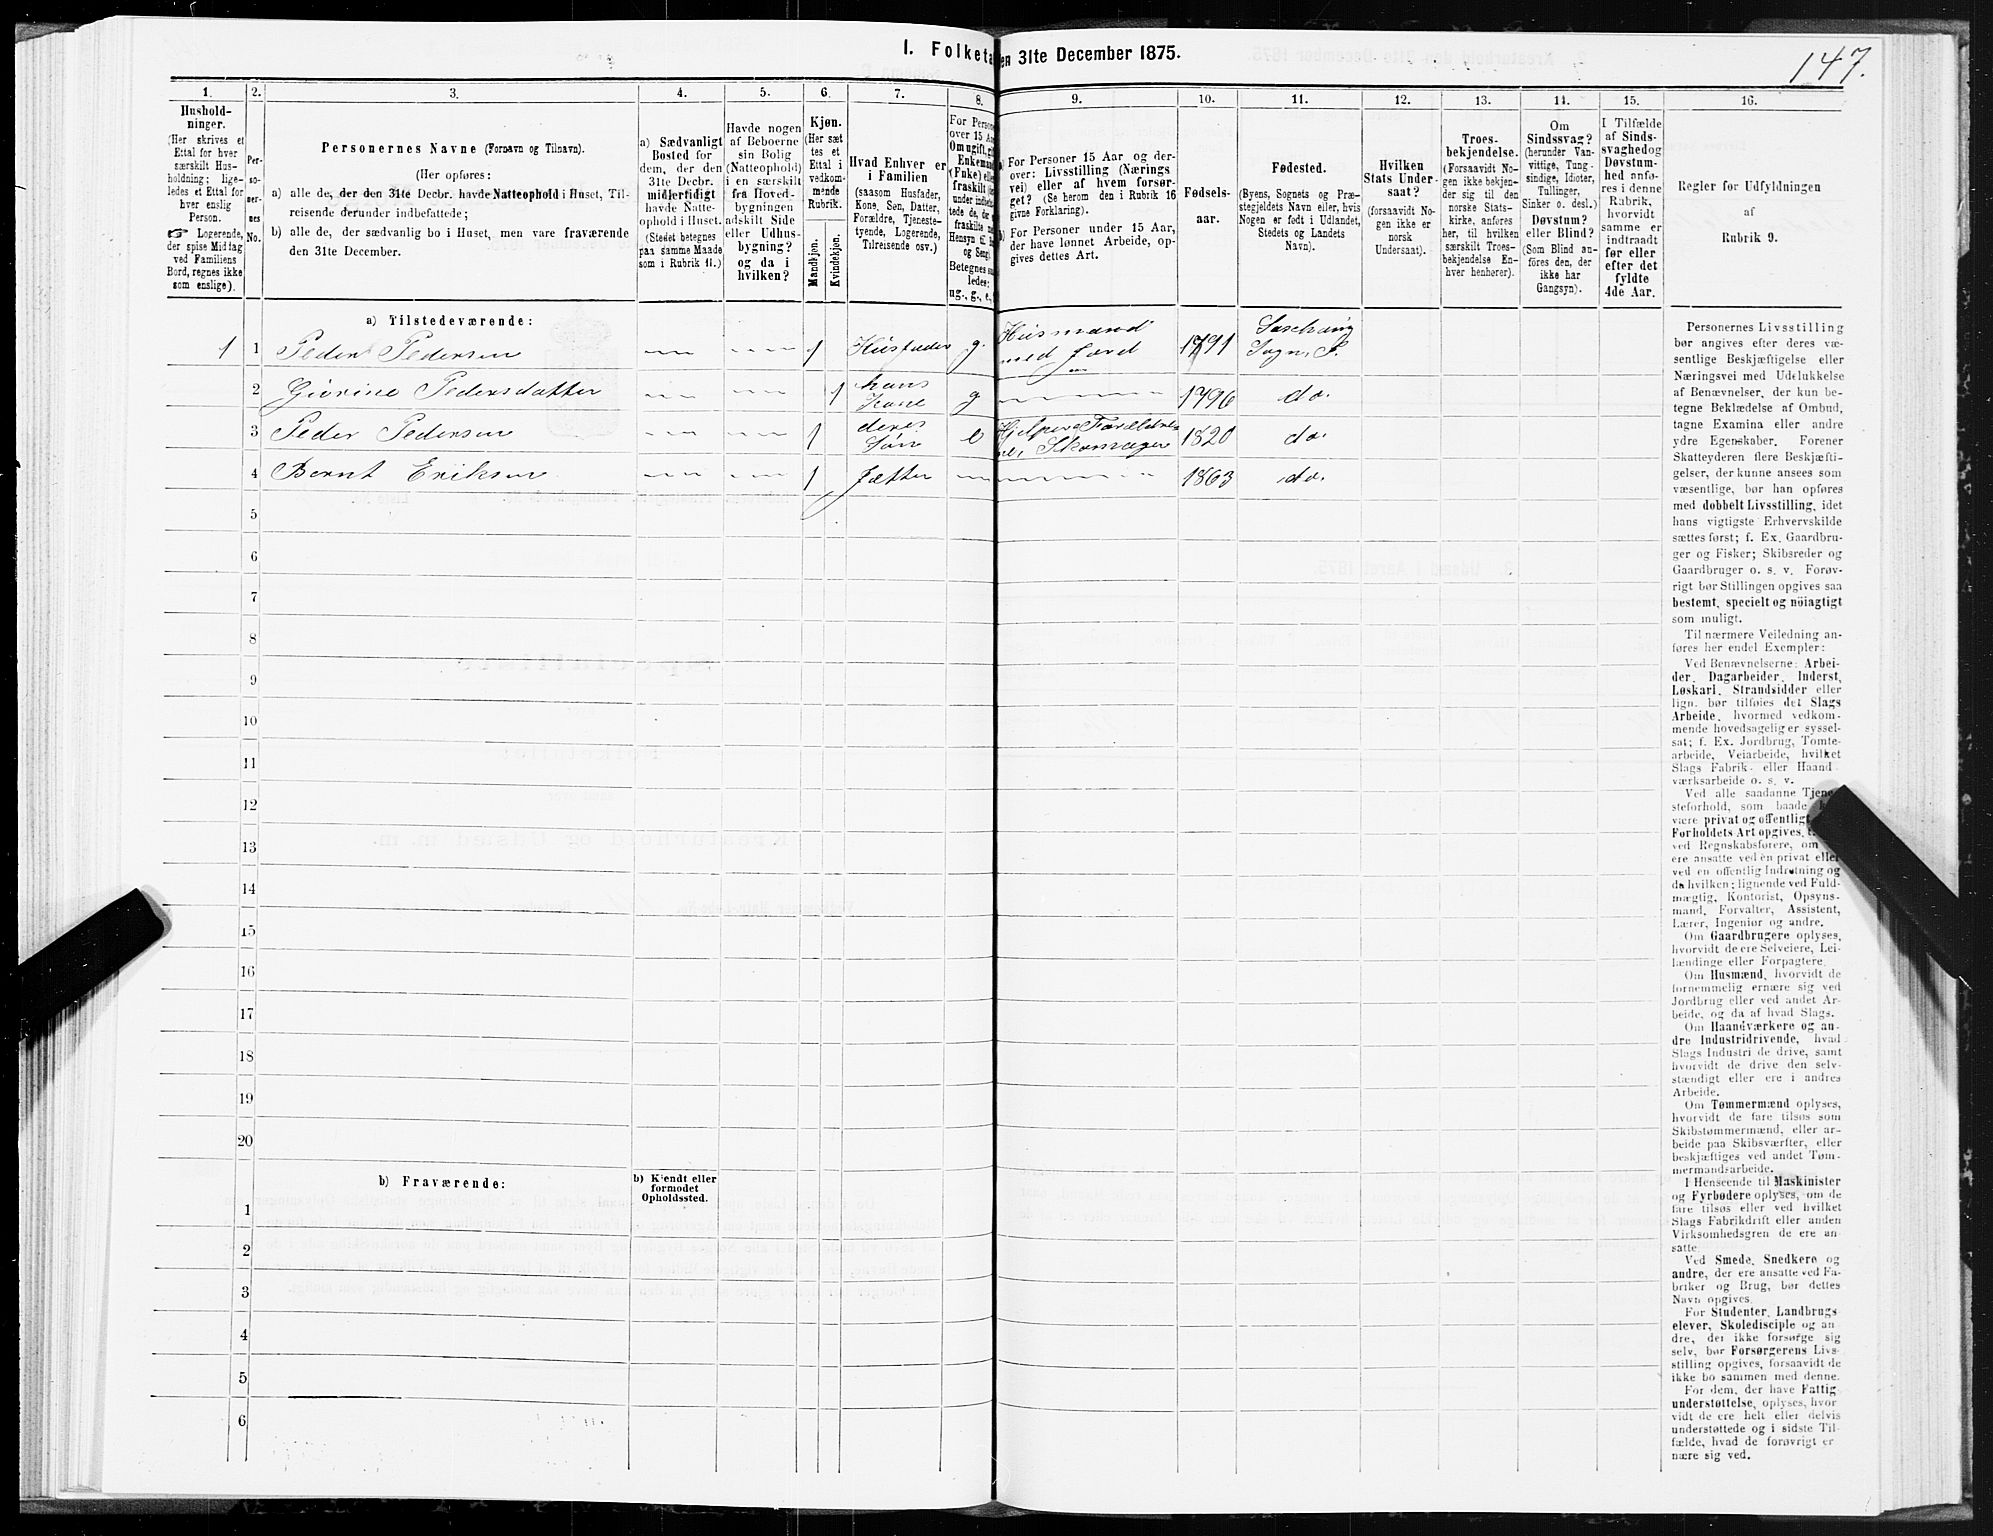 147.
I. Folketa en 31te December 1875.
1. 2. 3. 4. 5. 6. 7. 8. 9. 10. 11. 12. 13. 14. 15. 16.
Hushold-
ninger.
(Her skrives et
Ettal for hver
særskilt Hus-
holdning; lige-
ledes et Ettal for
hver enslig
Person.
☞ Logerende,
der spise Middag
ved Familiens
Bord, regnes ikke
som enslige).
Per-
so-
ner-
nes
No.
Personernes Navne (Fornavn og Tilnavn).
(Her opføres:
a) alle de, der den 31te Decbr. havde Natteophold i Huset, Til-
reisende derunder indbefattede;
b) alle de, der sædvanlig bo i Huset, men vare fraværende
den 31te December.
a) Sædvanligt
Bosted for
dem, der den
31te Decbr.
midlertidigt
havde Natte-
ophold i Huset.
(Stedet betegnes
paa samme Maade
som i Rubrik 11.)
Havde nogen
af Beboerne
sin Bolig
(Natteophold)
i en særskilt
fra Hoved-
bygningen
adskilt Side
eller Udhus-
bygning?
og da i
hvilken?
Kjøn.
(Her sæt
tes et
Ettal i
vedkom-
mende
Rubrik.
Mandkjøn.
Kvindekjøn.
Hvad Enhver er
i Familien
(saasom Husfader,
Kone, Søn, Datter,
Forældre, Tjeneste-
tyende, Logerende,
Tilreisende osv.)
For Persone
over 15 Aa
Om ugift, gif
Enkemand
(Enke) elle
fraskilt (
under indbefat
tede de, der e
fraskilte m
Hensyn til B
og Seng).
Betegnes saa
ledes:
ug., g., e.,
a) For Personer 15 Aar og der-
over: Livsstilling (Nærings
vei) eller af hvem forsør-
get? (Se herom den i Rubrik 16
givne Forklaring).
b) For Personer under 15 Aar,
der have lønnet Arbeide, op-
gives dettes Art.
Fødsels-
aar.
Fødested.
(Byens, Sognets og Præ-
stegjeldets Navn eller, hvis
Nogen er født i Udlandet,
Stedets og Landets
Navn).
Hvilken
Stats Under-
saat?
(forsaavidt No-
gen ikke er
norsk
Undersaat).
Troes-
bekjendelse.
(Forsaavidt No-
gen ikke bekjen-
der sig til den
norske Stats-
kirke, anføres
her, til hvilken
særskilt Troes-
bekjendelse En-
hver henhører).
Om
Sindssvag?
(herunder Van-
vittige, Tung-
sindige, Idioter,
Tullinger,
Sinker o. desl.)
Døvstum?
eller Blind?
(Som Blind an-
föres den, der
ikke har
Gangsyn).
I Tilfælde
af Sinds-
svaghed og
Døvstum-
hed anfø-
res i denne
Rubrik,
hvorvidt
samme er
indtraadt
før eller
efter det
fyldte
4de Aar.
Regler for Udfyldningen
af
Rubrik 9.
a) Tilstedeværende:
1 1 Peder Pedersen 1 Husfader g. Husmand med Jord 1791 Sogn, P.
2 Pedersdatter 1 hans Kone g 1796 do.
3 Peder Pedersen 1 deres Søn e Hjelper Forældrene, Skomager 1820 do.
4 Bernt Eriksen 1 1863 do.
5
6
7
8
9
10
11
12
13
14
15
16
17
18
19
20
b) Fraværende:
b) Kjendt eller
formodet
Opholdssted.
1
2
3
4
5
6
Personernes Livsstilling
bør angives efter deres væ-
sentlige Beskjæftigelse eller
Næringsvei med Udelukkelse
af Benævnelser, der kun be-
tegne Beklædelse af Ombud,
tagne Examina eller andre
ydre Egenskaber. Forener
Skatteyderen flere Beskjæfti-
gelser, der kunne ansees som
væsentlige, bør han opføres
med dobbelt Livsstilling, idet
hans vigtigste Erhvervskilde
sættes først; f. Ex. Gaardbru-
ger og Fisker; Skibsreder og
Gaardbruger o. s. v. Forøv-
rigt bør Stillingen opgives saa
bestemt, specielt og nöiagtigt
som muligt.
Til nærmere Veiledning an-
føres her endel Exempler:
Ved Benævnelserne: Arbei-
der, Dagarbeider, Inderst,
Løskarl, Strandsidder eller
lign. bør tilføies det Slags
Arbeide, hvormed vedkom-
mende hovedsagelig er syssel-
sat; f. Ex. Jordbrug, Tomte-
arbeide, Veiarbeide, hvilket
Slags Fabrik- eller Haand-
værksarbeide o. s. v.
Ved alle saadanne Tjene-
steforhold, som baade
være privat og offentligt
Forholdets Art opgives,
ved Regnskabsførere, om
ere ansatte ved en privat eller
ved en offentlig Indretning og
da hvilken; lignende ved Fuld-
mægtig, Kontorist, Opsyns-
mand, Forvalter, Assistent,
Lærer, Ingeniør og andre.
Om Gaardbrugere oplyses,
hvorvidt de ere Selveiere, Lei-
lændinge eller Forpagtere.
Om Husmænd, hvorvidt de
fornemmelig ernære sig ved
Jordbrug eller ved andet Ar-
beide, og da af hvad Slags.
Om Haandværkere og an-
dre Industridrivende, hvad
Slags Industri de drive, samt
hvorvidt de drive den selv-
stændigt eller ere i andres
Arbeide.
Om Tømmermænd oplyses,
hvorvidt de fare tilsøs som
Skibstømmermænd, eller ar-
beide paa Skibsværfter, eller
beskjæftiges ved andet Tøm-
mermandsarbeide.
I Henseende til Maskinister
og Fyrbødere oplyses, om de
fare tilsøs eller ved hvilket
Slags Fabrikdrift eller anden
Virksomhedsgren de ere an-
satte.
Ved Smede, Snedkere og
andre, der ere ansatte ved Fa-
briker og Brug, bør dettes
Navn opgives.
For Studenter, Landbrugs
elever, Skoledisciple og an
dre, der ikke forsørge sig
selv, bør Forsørgerens Livs-
stilling opgives, forsaavidt de
ikke bo sammen med denne.
For dem, der have Fattig
understøttelse, oplyses, hvor
vidt de ere helt eller delvis
understøttede og i sidste Til-
fælde, hvad de forøvrigt er
nære sig ved.